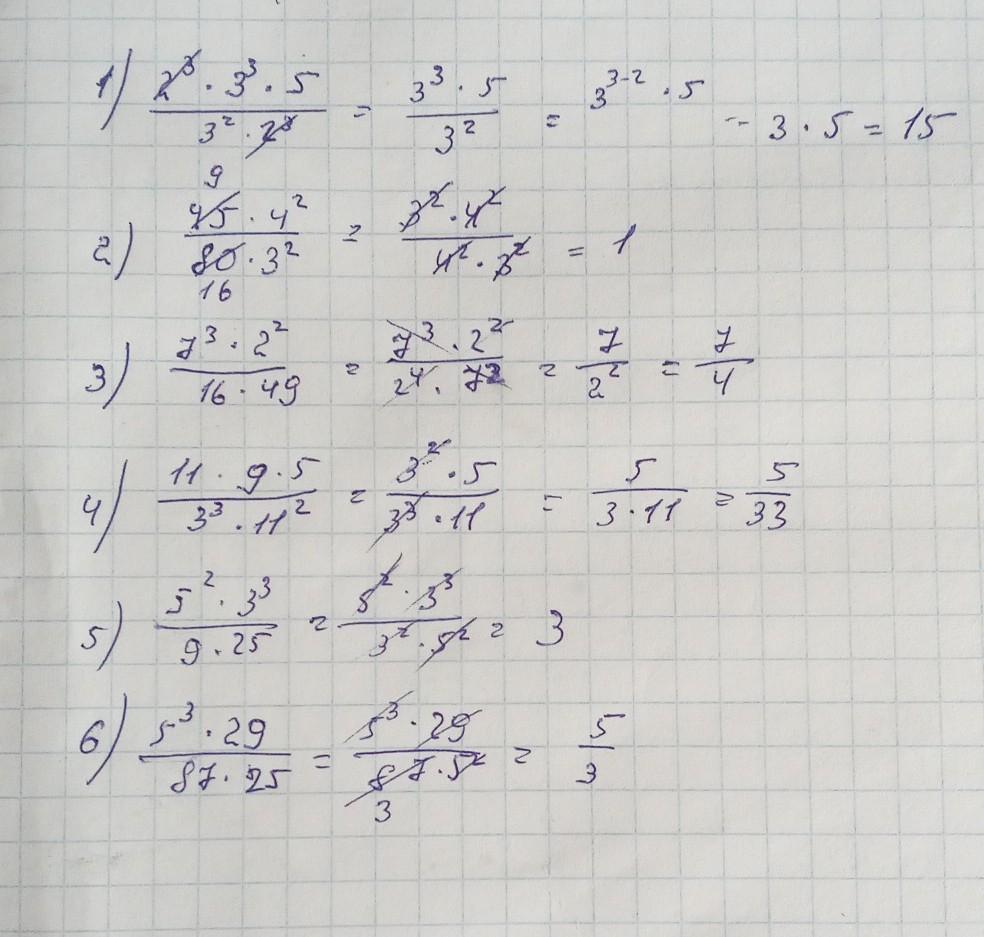 1) (2³ · 3³ · 5)/(3² · 2³) = (3³ · 5)/3² = 3³⁻² · 5 = 3 · 5 = 15
2) (45 · 4²)/(80 · 3²) 9 16 = (3² · 4²)/(4² · 3²) = 1
3) (7³ · 2²)/(16 · 49) = (7³ · 2²)/(2⁴ · 7²) = 7/2² = 7/4
4) (11 · 9 · 5)/(3³ · 11²) = (3² · 5)/(3³ · 11) = 5/(3 · 11) = 5/33
5) (5² · 3³)/(9 · 25) = (5² · 3³)/(3² · 5²) = 3
6) (5³ · 29)/(87 · 25) = (5³ · 29)/(87 · 5²) 3 = 5/3